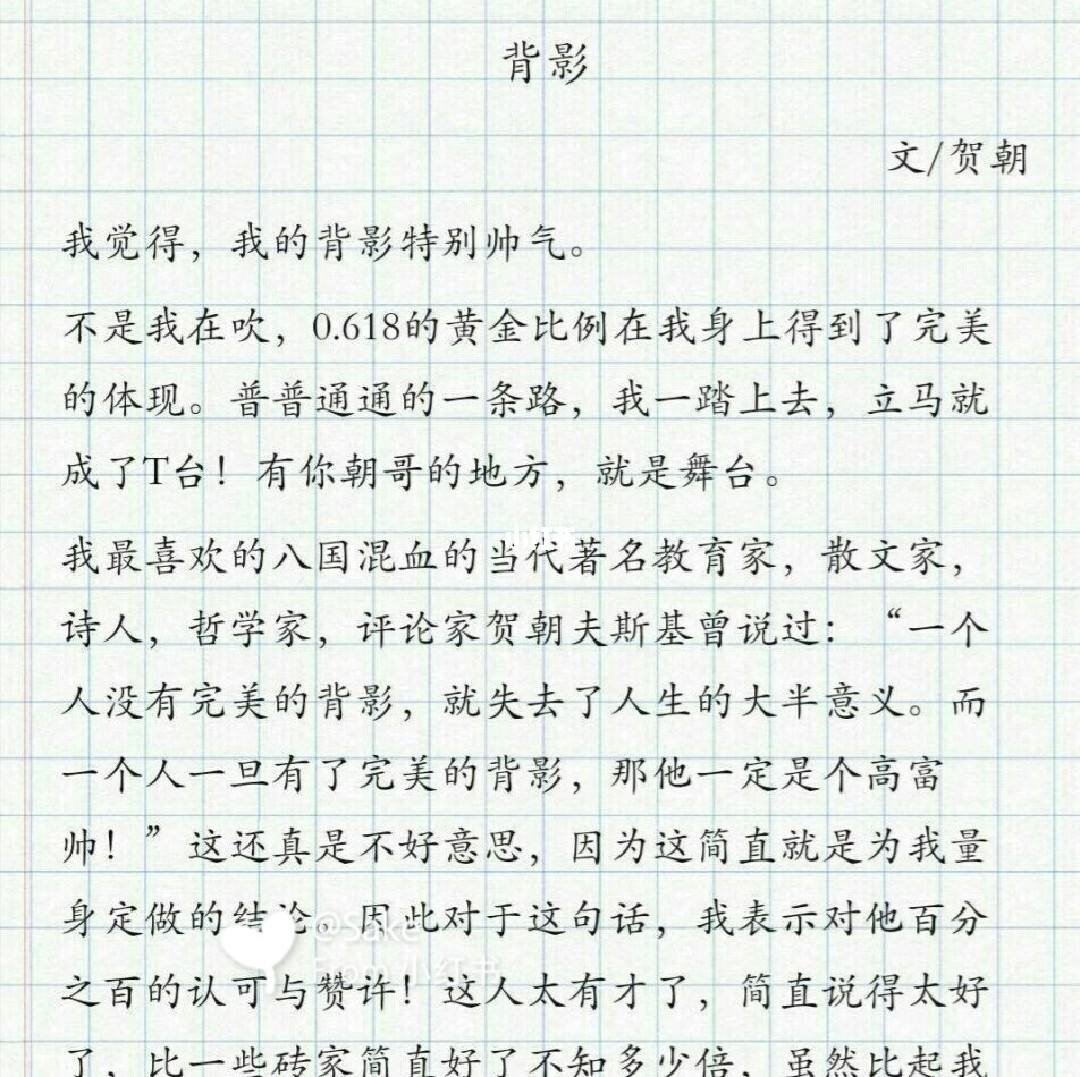 背影
文/贺朝
我觉得，我的背影特别帅气。
不是我在吹，0.618的黄金比例在我身上得到了完美
的体现。普普通通的一条路，我一踏上去，立马就
成了T台！有你朝哥的地方，就是舞台。
我最喜欢的八国混血的当代著名教育家，散文家，
诗人，哲学家，评论家贺朝夫斯基曾说过：“一个
人没有完美的背影，就失去了人生的大半意义。而
一个人一旦有了完美的背影，那他一定是个高富
帅！”这还真是不好意思，因为这简直就是为我量
身定做的结论。因此对于这句话，我表示对他百分
@Sake
From 小红书
之百的认可与赞许！这人太有才了，简直说得太好
了，比一些砖家简直好了不知多少倍，虽然比起我